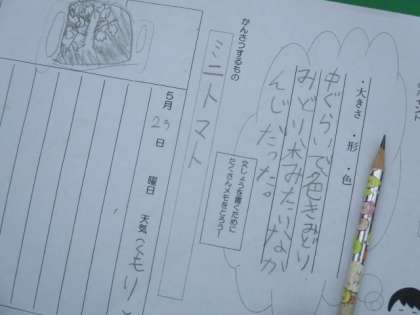 ・大きさ ・形 ・色
中ぐらいで色きみどり
みどり水みたいなか
んじだった。
文しょうを書くために
たくさんメモをとろう！
かんさつするもの
ミニトマト
5月23日 曜日 天気 くもり